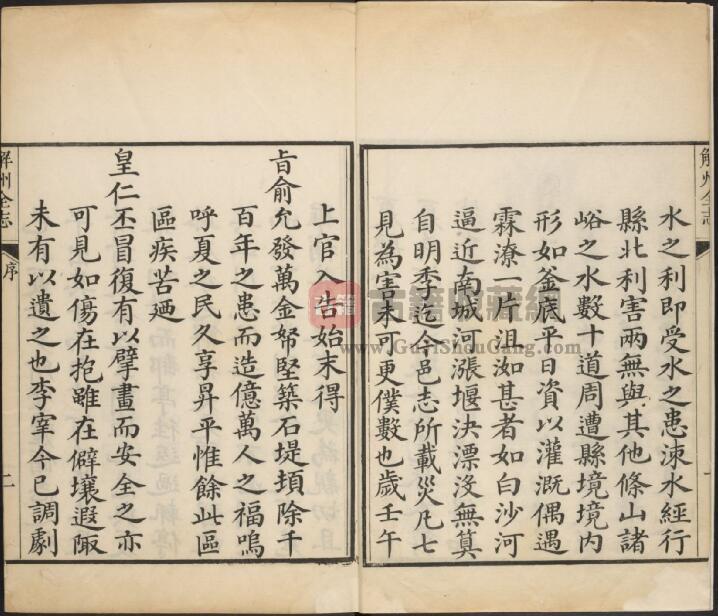 解州全志
水之利即受水之患涑水經行
縣北利害兩無與其他條山諸
峪之水數十道周遭縣境境内
形如釜底平日資以灌溉偶遇
霖潦一片沮洳甚者如白沙河
逼近南城河漲堰決漂没無算
自明季迄今邑志所載災凡七
見為害未可更僕數也歲壬午
上官入告始末得
旨俞允發萬金帑堅築石堤頓除千
百年之患而造億萬人之福嗚
呼夏之民久享昇平惟餘此區
區疾苦廼
皇仁丕冒復有以擘畫而安全之亦
可見如傷在抱雖在僻壤遐陬
未有以遺之也李宰今已調劇
解州全志
序
二
古籍收藏網
www.GuJiShouCang.com